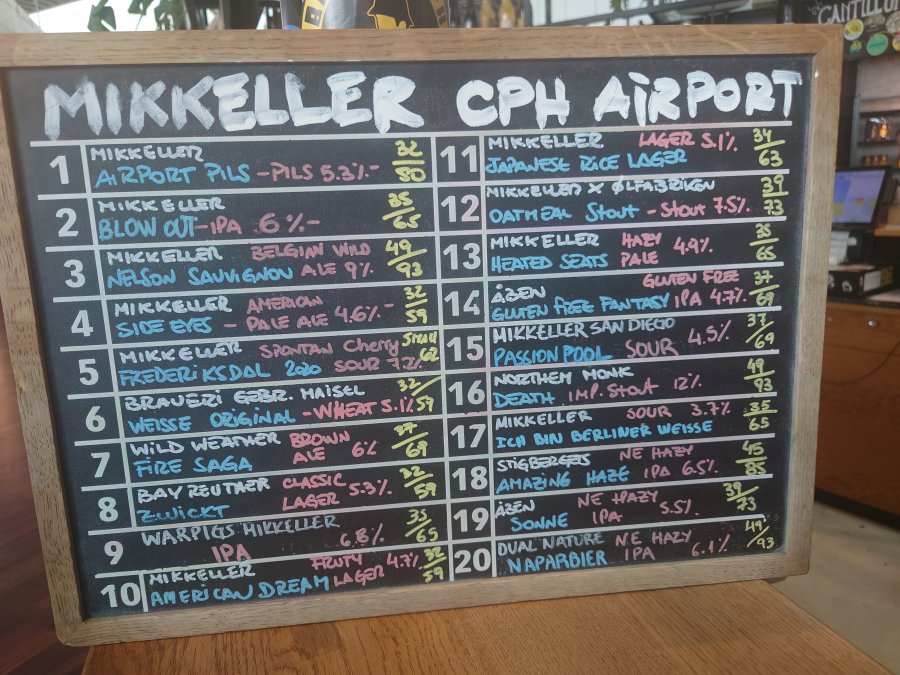 CANTILLON
MIKKELLER CPH AIRPORT
1 MIKKELLER 32
AIRPORT PILS - PILS 5.3% - 80
2 MIKKELLER 35
BLOW OUT - IPA 6% - 65
3 MIKKELLER BELGIAN WILD 49
NELSON SAUVIGNON ALE 9% 93
4 MIKKELLER AMERICAN 32
SIDE EYES - PALE ALE 4.6% - 59
5 MIKKELLER SPONTAN Cherry
FREDERIKSDAL 2020 SOUR 7.2% 62
6 BRAUERI GEBR. MAISEL 32
WEISSE ORIGINAL - WHEAT 5.1% 59
7 WILD WEATHER BROWN 37
FIRE SAGA ALE 6% 69
8 BAYREUTHER CLASSIC 32
ZWICKT LAGER 5.3% 59
9 WARPIGS MIKKELLER 35
IPA 6.8% 65
10 MIKKELLER FRUTY 4.7% 32
AMERICAN DREAM LAGER 59
11 MIKKELLER LAGER 5.1% 34
JAPANESE RICE LAGER 63
12 MIKKELLER X ØLFABRIKEN 39
OATMEAL STOUT - STOUT 7.5% 73
13 MIKKELLER HAZY 35
HEATED SEATS PALE 4.9% 65
14 ÅBEN GLUTEN FREE 37
GLUTEN FREE FANTASY IPA 4.7% 69
15 MIKKELLER SAN DIEGO 37
PASSION POOL SOUR 4.5% 69
16 NORTHERN MONK 49
DEATH IMP. STOUT 12% 93
17 MIKKELLER SOUR 3.7% 35
ICH BIN BERLINER WEISSE 65
18 STIGBERGETS NE HAZY 45
AMAZING HAZE IPA 6.5% 85
19 ÅBEN NE HAZY 39
SONNE IPA 5.5% 73
20 DUAL NATURE NE HAZY 49
NAPARBIER IPA 6.1% 93